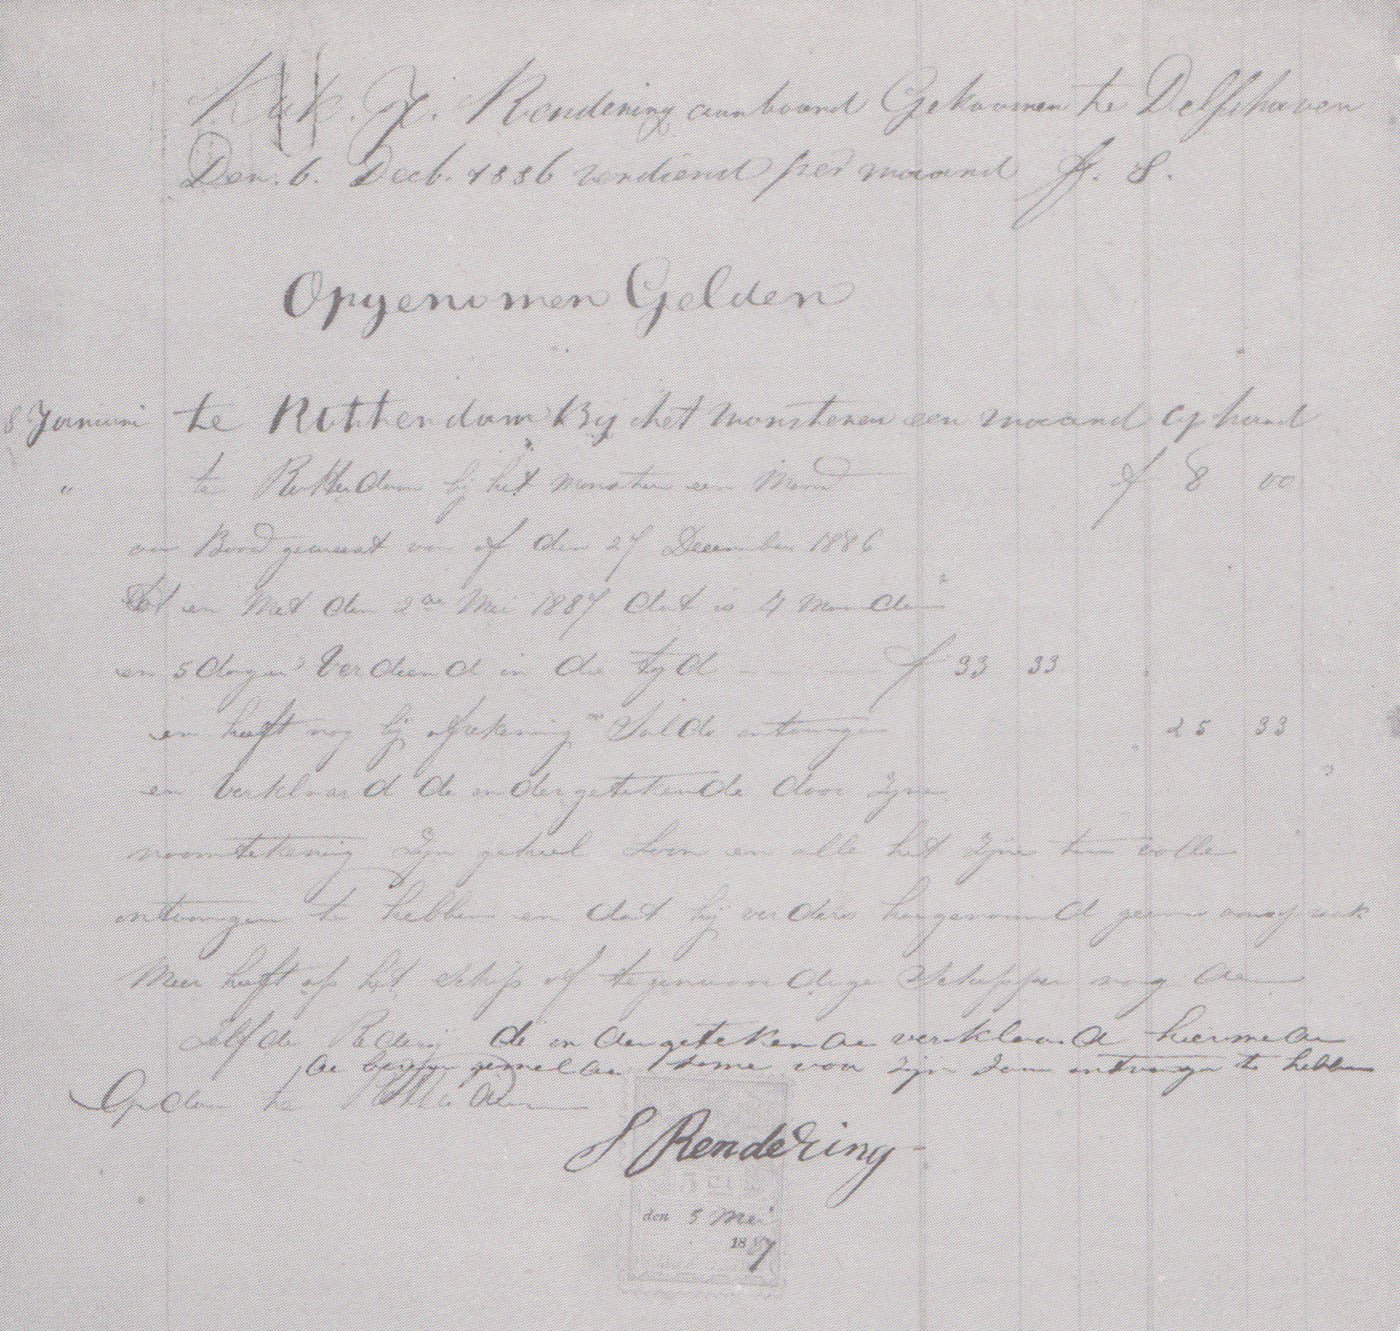 Kok. H. Rendering aan boord Gekoomen te Delfshaven
Den. 6. Decb. 1886 verdiend per maand ff. 8.
Opgenomen Gelden
8 Januari te Rotterdam Bij het monsteren een maand op hand
" te Rotterdam bij het monsteren een Mand f 8 00
aan Boord geweest van af den 27 December 1886
Tot en Met den 2de Mei 1887 dat is 4 Maanden
en 5 dagen Verdiend in die tyd f 33 33
en heeft nog bij afrekening Saldo ontvangen 25 33
en Verklaard de ondergetekende door Zijne
naamtekening Zijn geheel Loon en alle het Zijne ten volle
ontvangen te hebben en dat hij verders hegenaamd geene aanspraak
Meer heeft op het Schip of tegenwoordige Schipper nog de
Zelfde Rederij de ondergetekende verklaard hiermede
de boven gemelde some voor zijn ontvangen te hebben
Op den te
S Rendering
den 5 Mei
1887